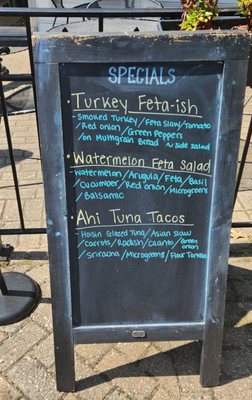 SPECIALS
· Turkey Feta-ish
- Smoked Turkey / Feta Slaw / Tomato
/ Red onion / Green Peppers
/ on Multigrain Bread ~ side salad
· Watermelon Feta Salad
- Watermelon / Arugula / Feta / Basil
/ Cucumber / Red onion / Microgreens
/ Balsamic
· Ahi Tuna Tacos
- Hoisin Glazed Tuna / Asian Slaw
/ Carrots / Radish / Cilantro / Green onion
/ Sriracha / Microgreens / Flour Tortilla